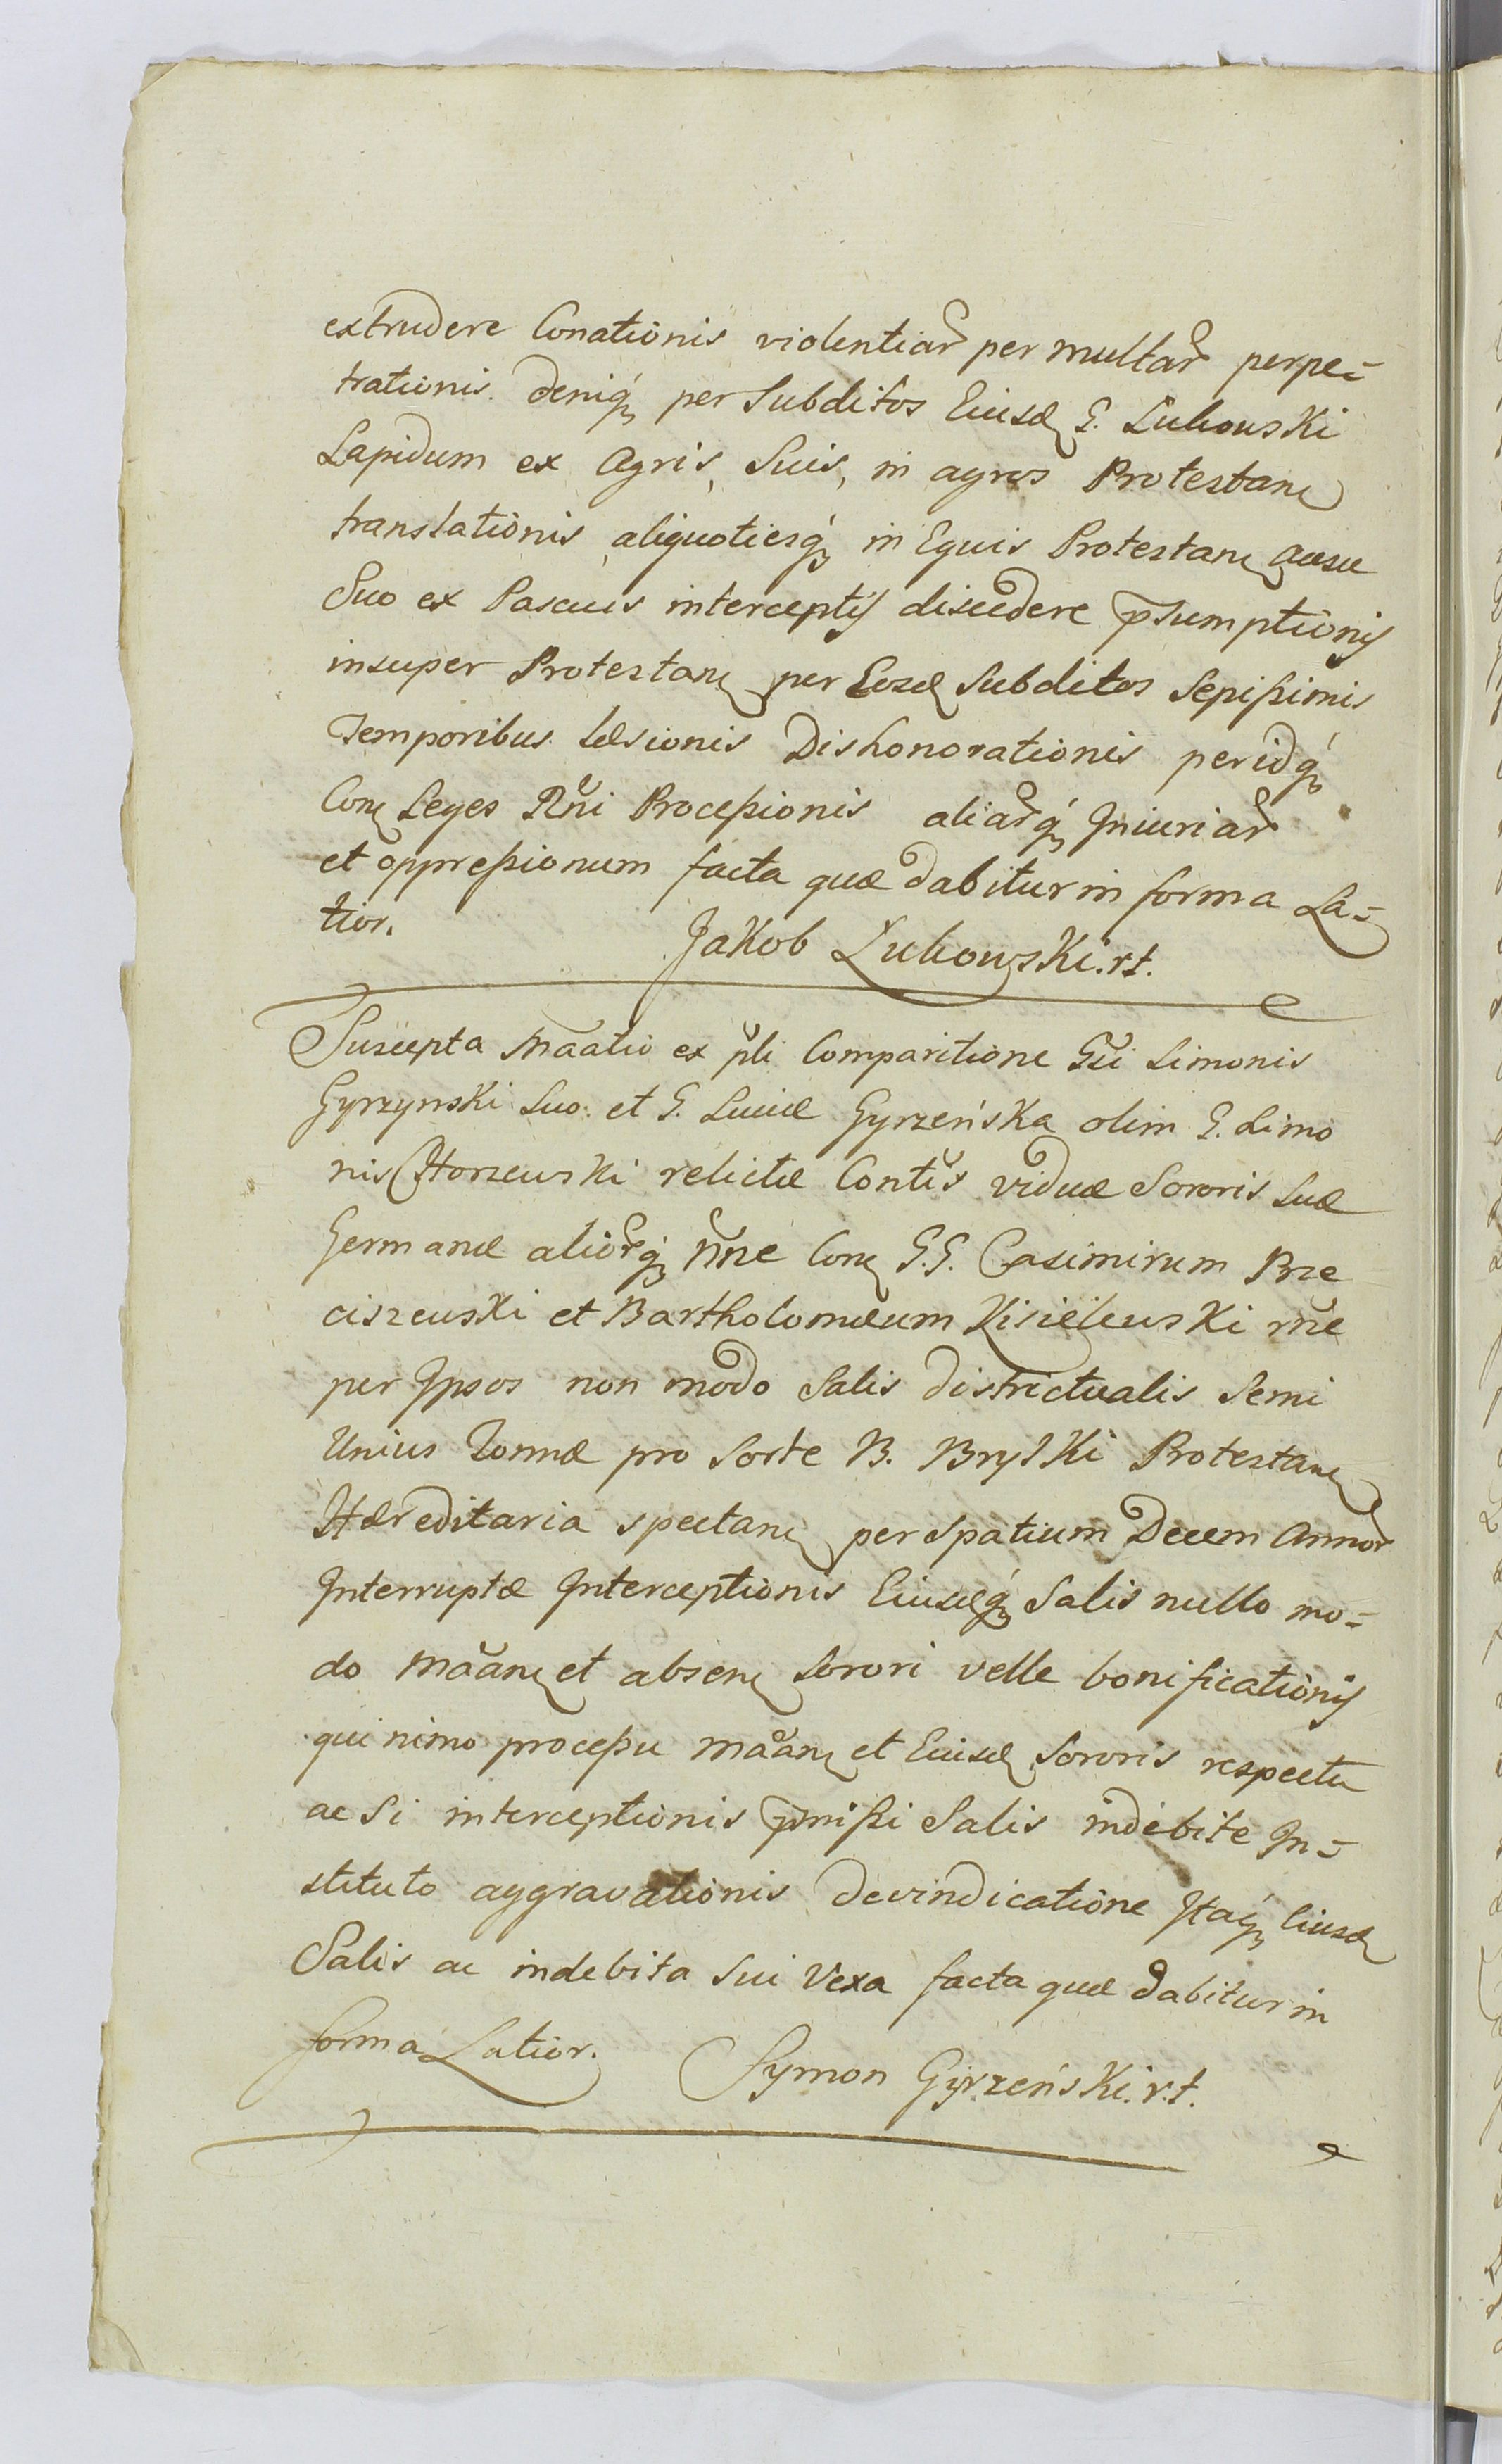 extrudere Conationis violentiar̃ per multar̃ perpe=
trationis. deniq́ꝫ per Subditos Eiusd G. Łukowski
Lapidum ex Agris, Suis, in agros Protestan
translationis aliquotiesq́ꝫ in Equis Protestan ausu
Suo ex Pascuis interceptis discedere p̃sumptionis
insuper Protestan per Eosd Subditos Sepißimis
Temporibus læsionis Dishonorationis per idq́ꝫ
Con Leges Rñi Proceßionis aliar̃q́ꝫ Iniuriar̃
et oppreßionum facta quæ dabitur in forma La=
tior.
Jakob Łukowski. rt.
Suscepta Maãtio ex p̃li Comparitione Gñi Simonis
Gyrzynski Suo. et G. Luciæ Gyrzeńska olim G. Simo
nis Horzewski relictæ Contis̃ viduæ Sororis Suæ
Germanæ alior̃q́ꝫ ñne Con G.G. Casimirum Prze
ciszewski et Bartholomæum Kisielewski rñe
per Ipsos non modo Salis districtualis Semi
Unius Tonnæ pro Sorte B. Bryski Protestan
Hæreditaria spectan per Spatium Decem Annor̃
Interruptæ Interceptionis Eiusdq́ꝫ Salis nullo mo=
do Mãan et absen Sorori velle bonificationis
quinimo proceßu Mãan et Eiusd Sororis respectu
ac Si interceptionis p̃mißi Salis indebite In=
stituto aggravationis devindicatione Itaq́ꝫ Eiusd
Salis ac indebita Sui Vexa facta quæ dabitur in
forma Latior.
Symon Gyrzeński. r.t.